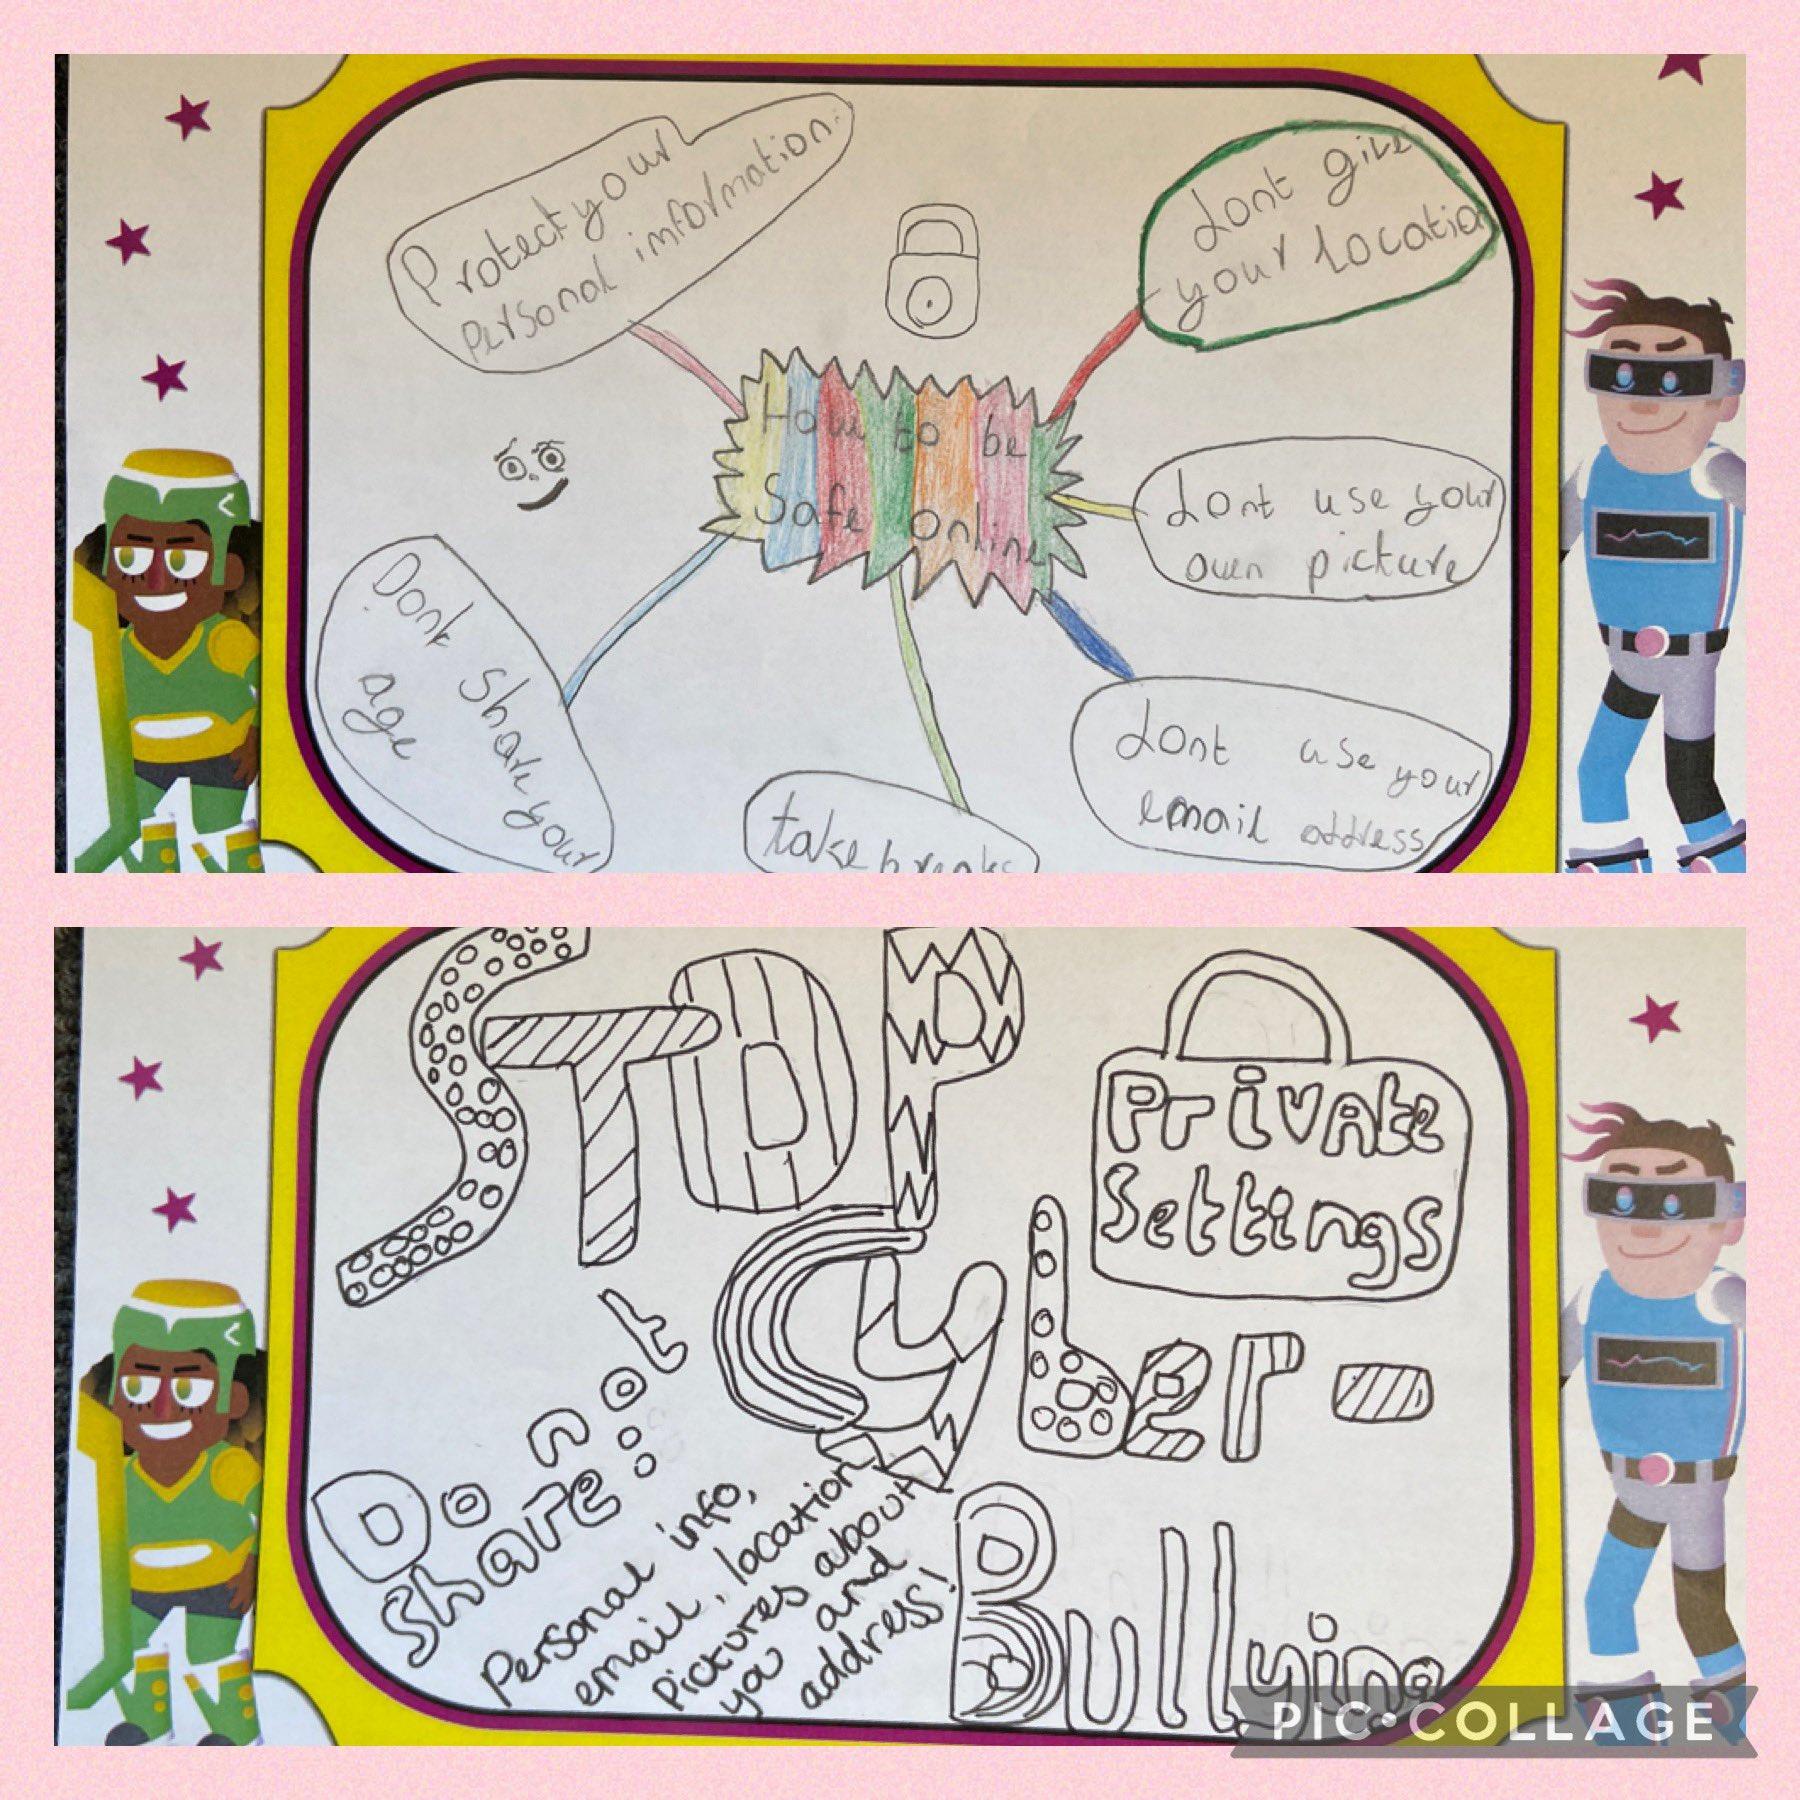 Protect your
personal information.
dont give
your location
How to be
Safe online
dont use your
own picture
Dont share your
age
dont use your
email address
take breaks
STOP
Private
Settings
Cyber-
Bullying
Do not
share:
Personal info,
email, location
Pictures about
you and
address!
PIC•COLLAGE